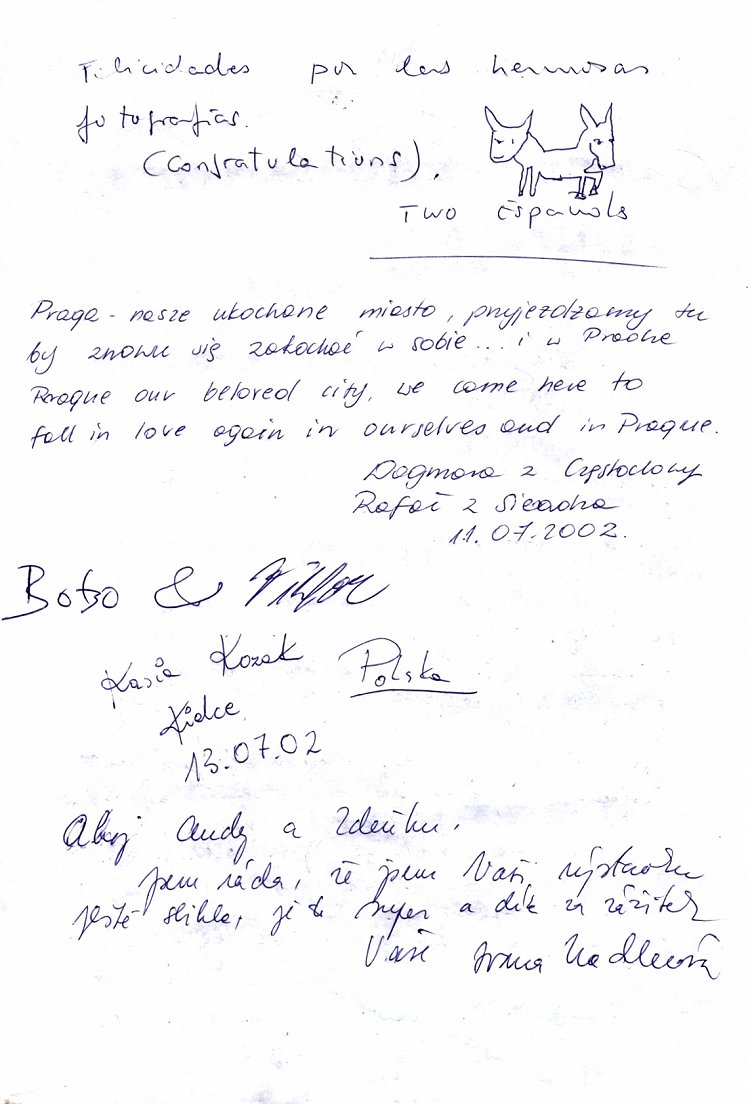 Felicidades por las hermosas
fotografías.
(Congratulations).
Two Españols
Praga - nasze ukochane miasto, przyjeżdżamy tu
by znowu się zakochać w sobie... i w Pradze
Prague our beloved city, we come here to
fall in love again in ourselves and in Prague.
Dagmara z Częstochowy
Rafał z Sieradza
11.07.2002.
Bobo & Viktor
Kasia Kozak Polska
Kielce
13.07.02
Ahoj Andy a Zdeňku.
jsem ráda, že jsem Vaši výstavku
ještě stihla, je to super a dík za zážitek
Vaše Ivana